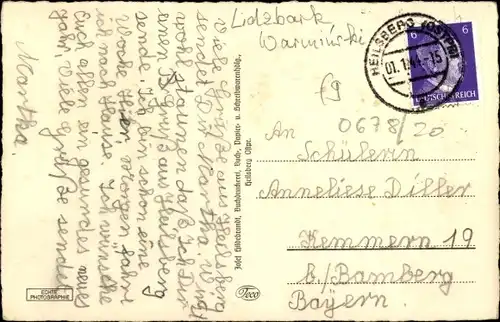 Viele Grüße aus Heilsberg
sendet Dir Martha. Wirst
wohl staunen daß ich Dir
einen Gruß aus Heilsberg
sende. Ich bin schon eine
Woche hier, Morgen fahre
ich nach Hause. Ich wünsche
Euch allen ein gesundes neues
Jahr. Viele Grüße sendet
Martha.
Lidzbark
Warmiński
HEILSBERG (OSTPR)
6 6
DEUTSCHES REICH
0678/20
An
Schülern
Anneliese Diller
Kemmern 19
b./Bamberg
Bayern.
Heilsberg Ostpr.
Foco
ECHTE
PHOTOGRAPHIE